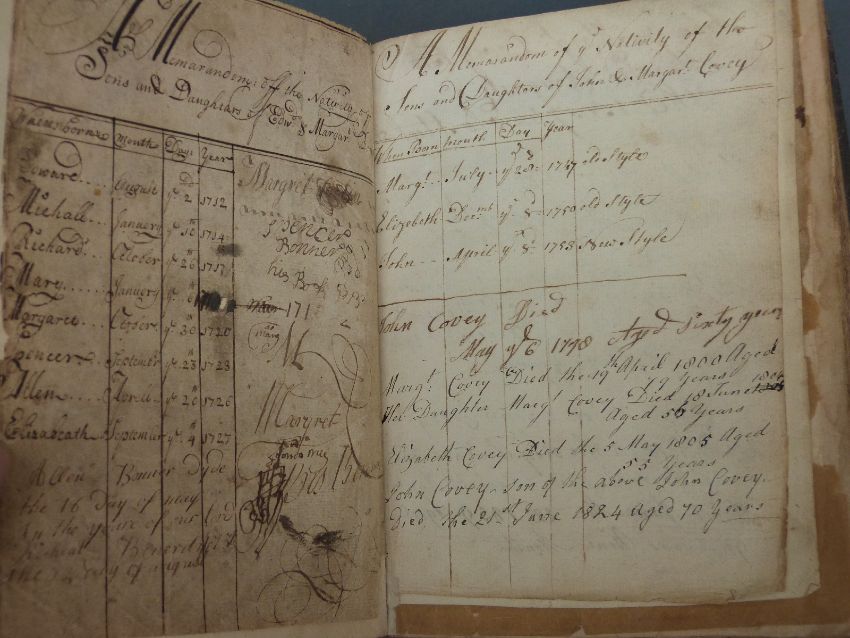 A Memorandom off the Nativity of
Sons and Daughters of Edwd & Margar
When born Month Days Year
Edward August ye 2d 1712
Michall January ye 10th 1714
Richard October ye 26th 1717
Mary January ye 6th
Margaret ye 30 1720
Spencer September ye 23 1723
Allen ye 20th 1726
Elizabeath September ye 4th 1727
Allen Bonner Dyde
the 16 Day of may
in the yeare of our Lord
of august
Margret
Spencer
Bonner
his Book
171
M
Margret
A Memorandom of ye Nativity of the
Sons and Daughters of John & Margart. Covey
When Born month Day Year
Margt. July ye 28th 1747 old Style
Elizabeth Decmbr ye 8th 1750 old Style
John April ye 8th 1753 New Style
John Covey Died
May ye 6th 1798 Aged Sixty
Margt. Covey Died the 19th April 1800 Aged
79 Years
Her Daughter Margt Covey Died 18 June 1804
Aged 56 Years
Elizabeth Covey Died the 5 May 1805 Aged
55 Years
John Covey son of the above John Covey.
Died the 21st June 1824 Aged 70 Years